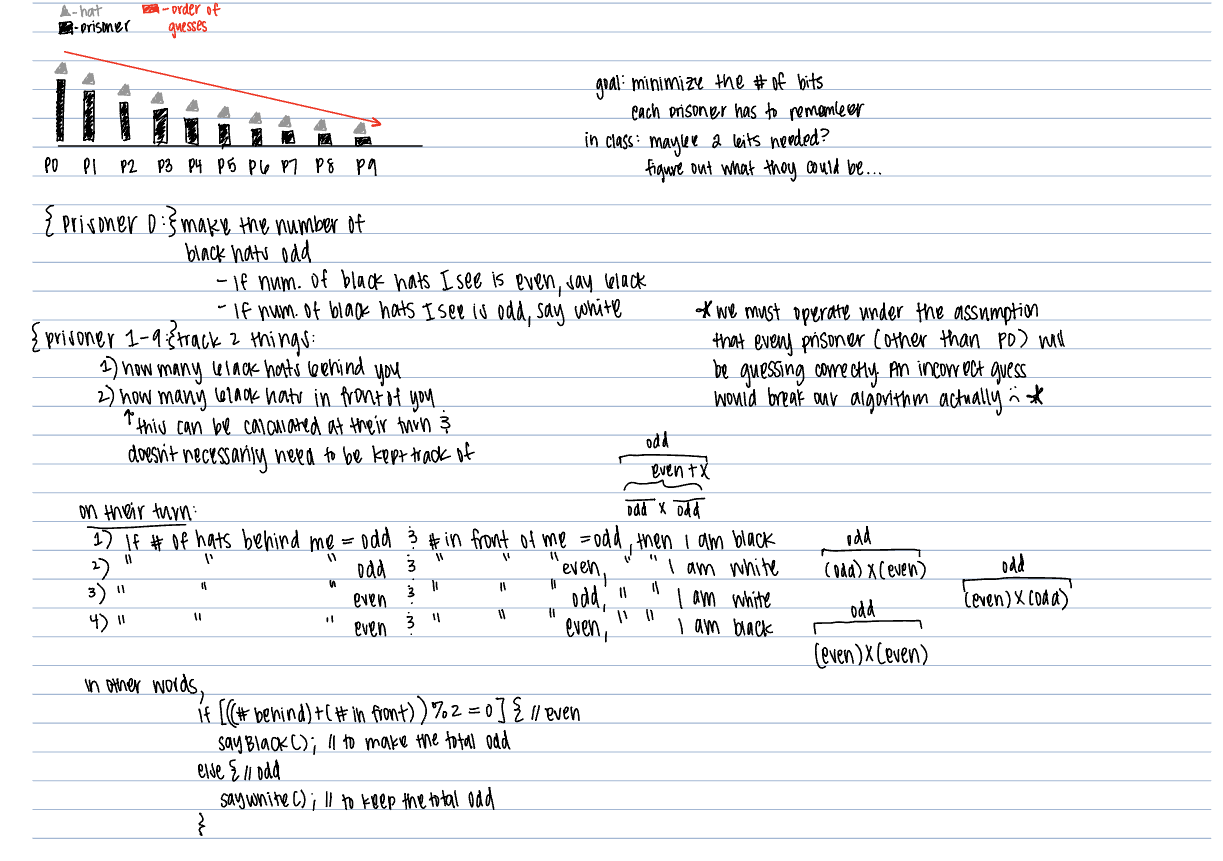 ▲-hat ■-order of
■-prisoner guesses
goal: minimize the # of bits
each prisoner has to remember
in class: maybe 2 bits needed?
figure out what they could be...
P0 P1 P2 P3 P4 P5 P6 P7 P8 P9
{prisoner 0:} make the number of
black hats odd
- if num. of black hats I see is even, say black
- if num. of black hats I see is odd, say white
{prisoner 1-9:} track 2 things:
1) how many black hats behind you
2) how many black hats in front of you
↑ this can be calculated at their turn &
doesn't necessarily need to be kept track of
* we must operate under the assumption
that every prisoner (other than P0) will
be guessing correctly. An incorrect guess
would break our algorithm actually :( *
odd
even + X
odd X odd
on their turn:
1) if # of hats behind me = odd & # in front of me = odd, then I am black
2) " " " odd & " " " even, " " I am white
3) " " " even & " " " odd, " " I am white
4) " " " even & " " " even, " " I am black
odd
(odd) X (even)
odd
(even) X (odd)
odd
(even) X (even)
in other words,
if [((# behind)+(# in front)) % 2 = 0] { // even
sayBlack(); // to make the total odd
else { // odd
saywhite(); // to keep the total odd
}